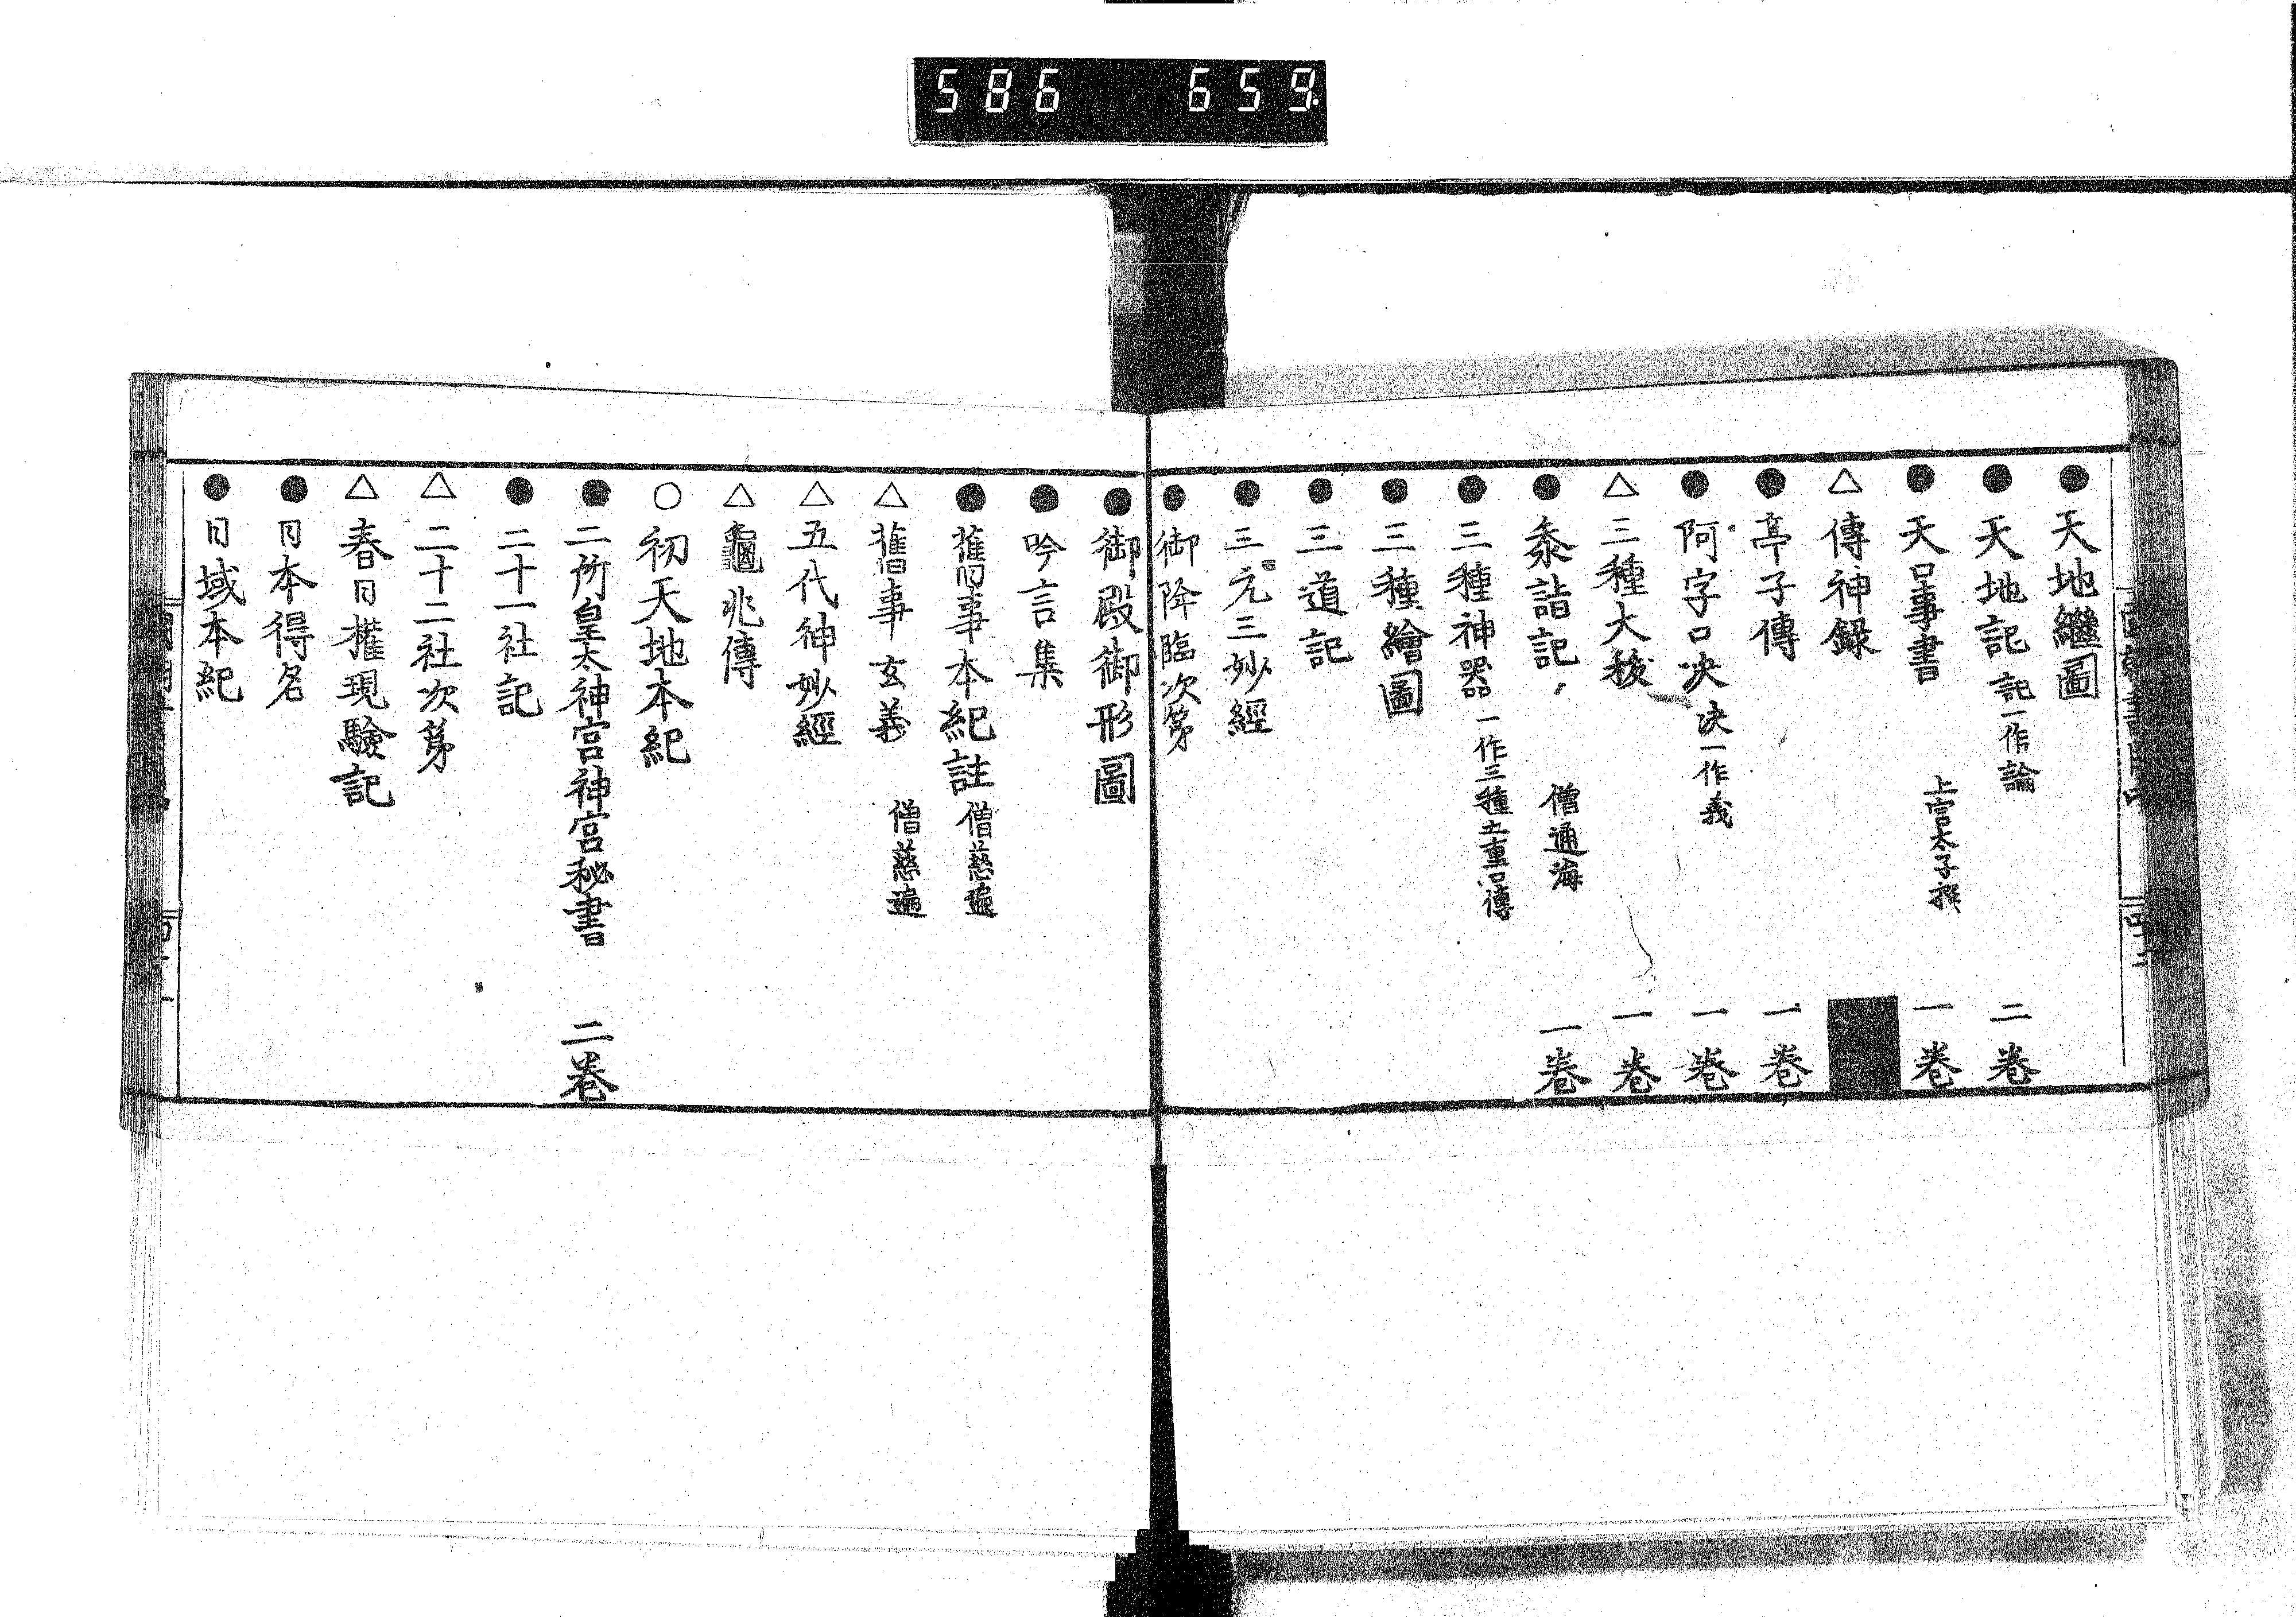 586 659
●天地繼圖
●天地記 記一作論 二卷
●天口事書 上宮太子撰 一卷
△傳神錄
●亭子傳 一卷
●阿字口决 决一作義 一卷
△三種大秡 一卷
●叅詣記 僧通海 一卷
●三種神器 一作三種五重口傳
●三種繪圖
●三道記
●三元三妙經
●御降臨次第
●御殿御形圖
●吟言集
●舊事本紀註 僧慈遍
△舊事玄義 僧慈遍
△五代神妙經
△龜兆傳
○初天地本紀
●二所皇太神宮神宮秘書 二卷
●二十一社記
△二十二社次第
△春日權現驗記
●日本得名
●日域本紀